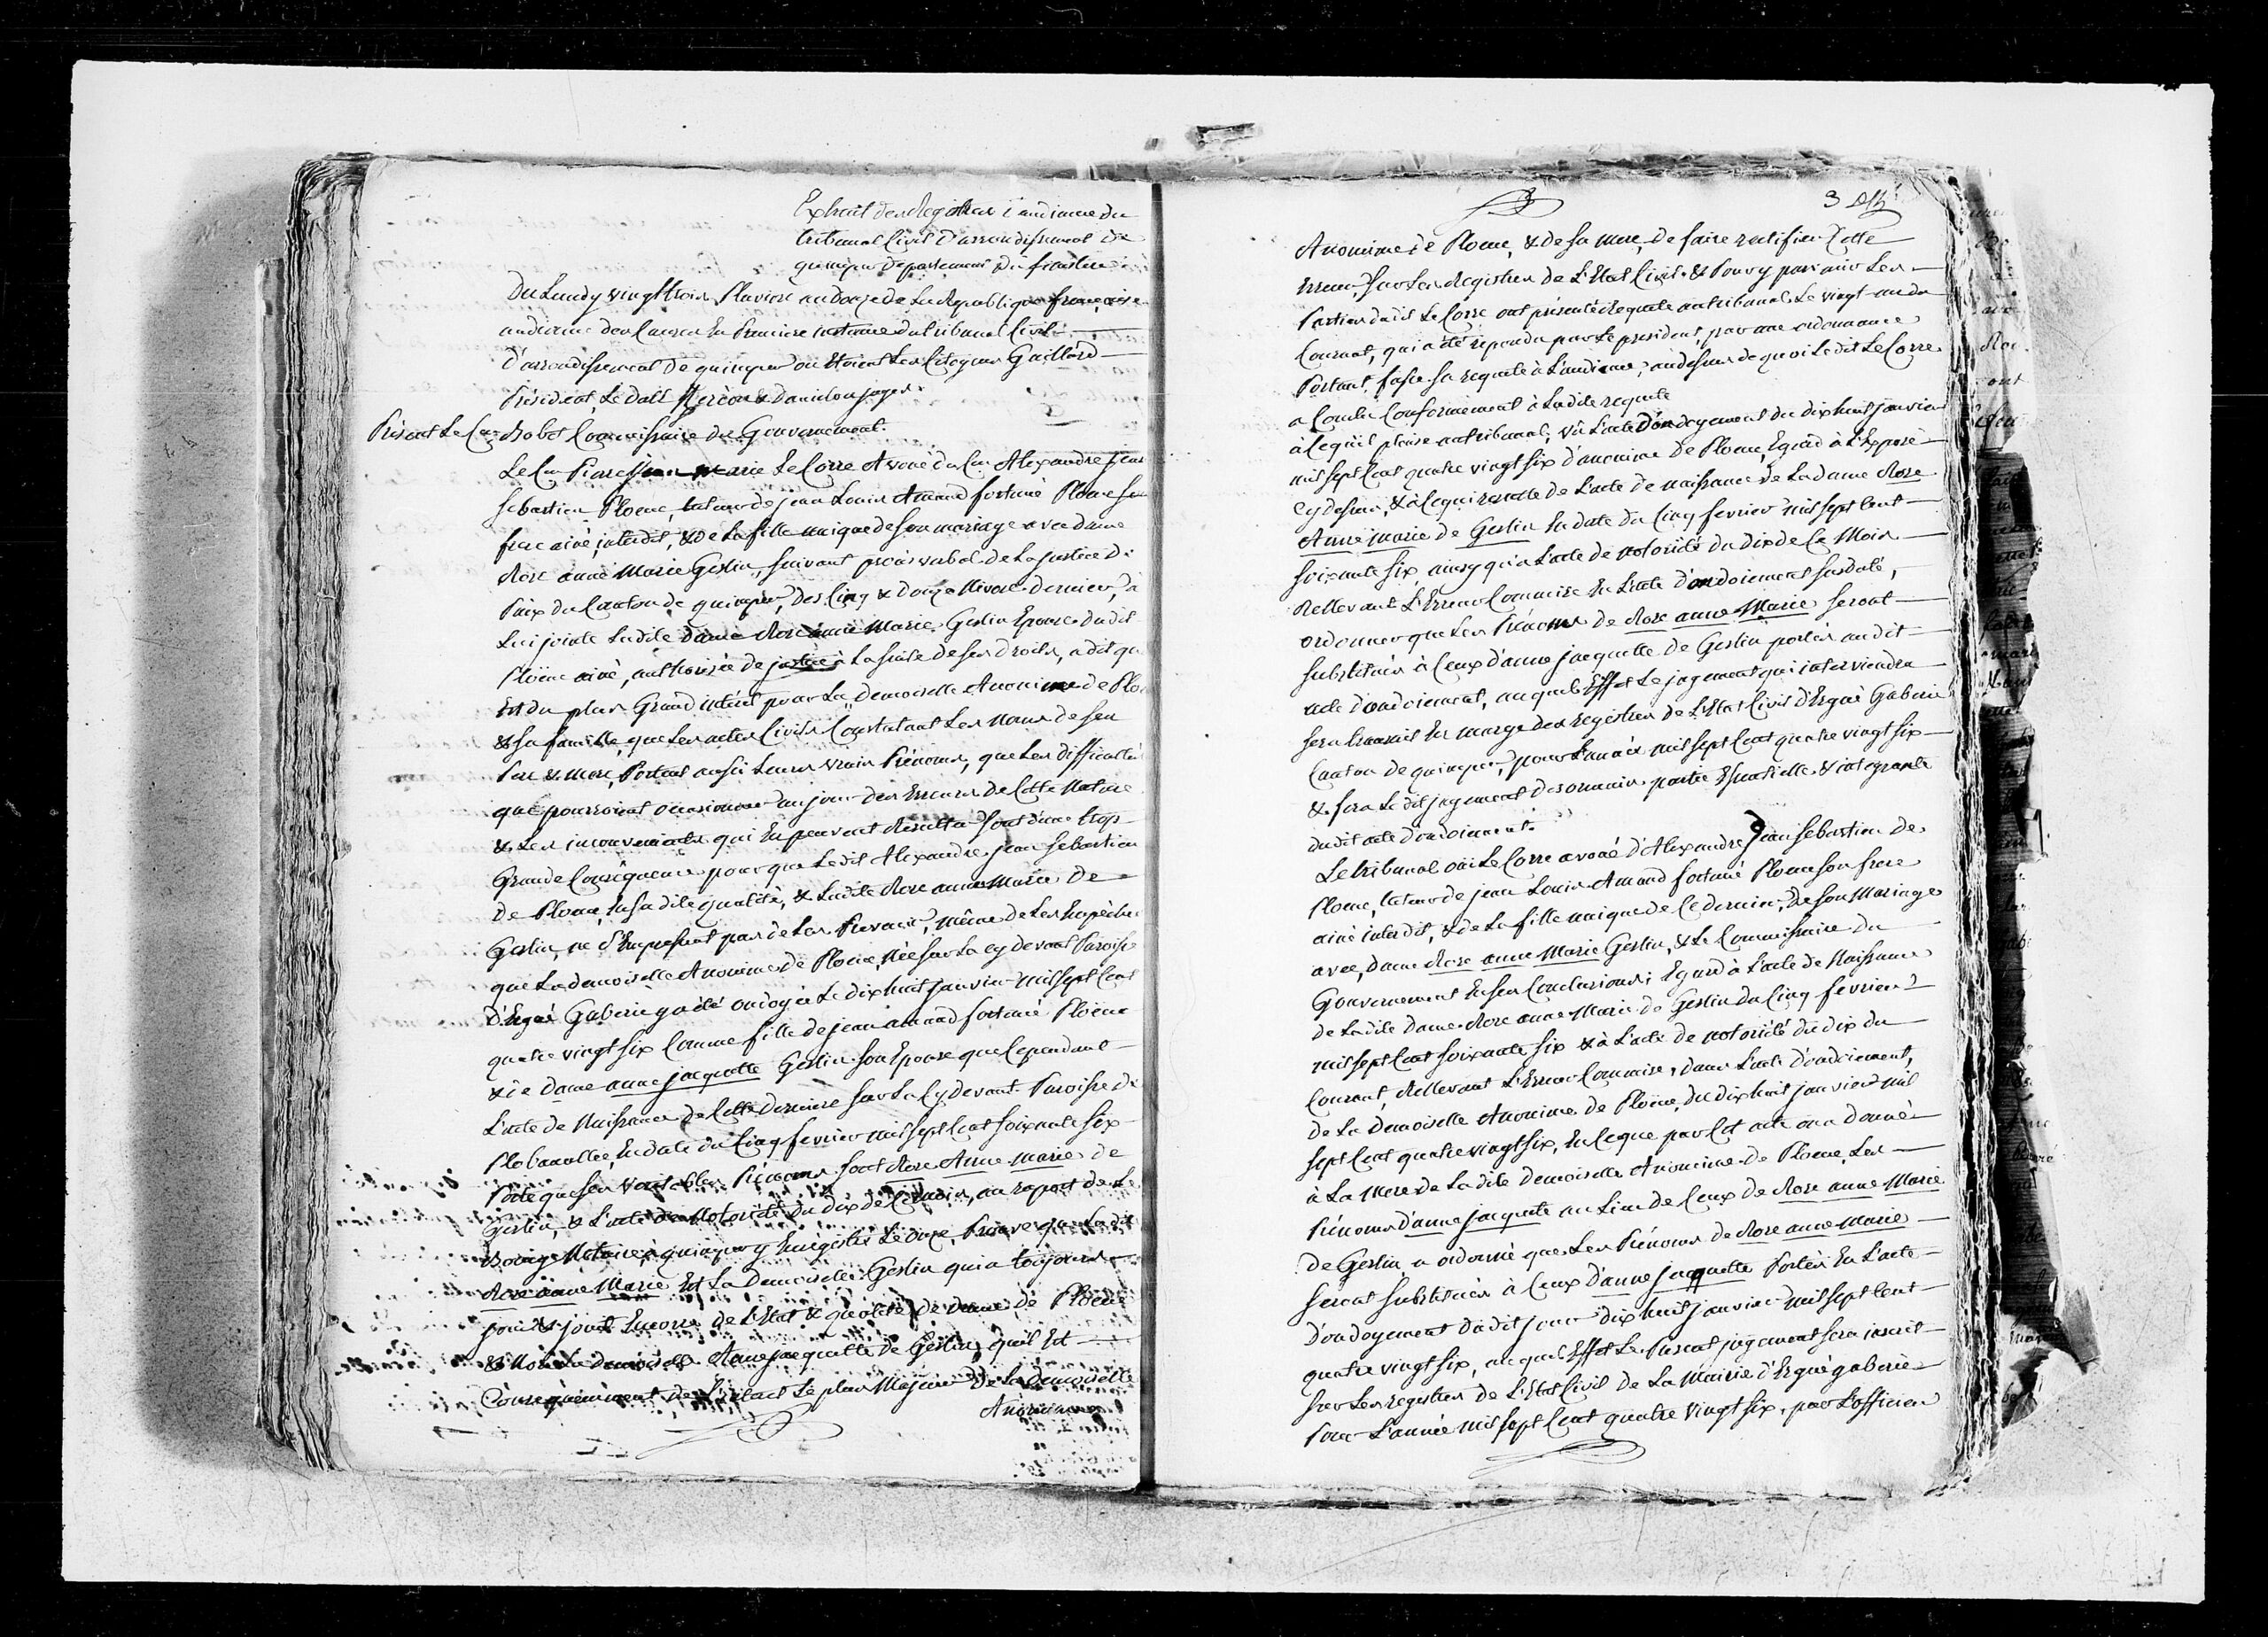 Extrait des Registres d'audience du
tribunal Civil d'arrondissement de
quimper departement du finistere
Du Lundy vingt trois Pluviose an douze de La Republique française
audience des Causes En Premiere instance du tribunal Civil
d'arrondissement de quimper ou Etoient Les Citoyens Gaillard
Président, Le Dall & Danielou juges
Présent Le Cen Bobet Commissaire du Gouvernement.
Le Cen Pierre jean marie Le Corre Avoué du Cen Alexandre jean
Sebastien Ploeuc, tuteur de jean Louis Amand fortuné Ploeuc son
frere ainé, interdit, & de La fille unique de son mariage avec dame
Rose anne Marie Geslin, suivant procès verbal de La justice de
Paix du Canton de quimper, des Cinq & Douze Nivose dernier, a
Lui jointe Ladite Dame Rose anne Marie Geslin Epouse dudit
Ploeuc ainé, authorisée de justice à La suite de ses Droits, a dit qu
Est du plus Grand interet pour La Demoiselle Anonime de Plo
& sa famille, que Les actes Civils Constatant Les Noms de ses
Pere & mere, Portent aussi Leurs vrais Prénoms, que Les difficultés
que pourroient occasionner un jour des Erreurs de Cette Nature
& Les inconvenients qui En peuvent Resulter sont d'une trop
Grande Conséquence pour que Ledit Alexandre jean Sebastien
De Ploeuc, En sa dite qualité, & Ladite Rose anne Marie De
Geslin, ne s'Empressent pas de Les Prevenir, même de Les Empêcher
que La demoiselle Anonime de Ploeuc, Née sur La cy devant Paroisse
d'Ergué Gabéric y a été ondoyée Le dix huit janvier mil sept Cent
quatre vingt six Comme fille de jean amand fortuné Ploeuc
& de Dame anne jacquette Geslin son Epouse que Cependant
L'acte de Naissance de Cette derniere sur La Cy devant Paroisse de
Plobanallec, En date du Cinq fevrier mil sept Cent soixante six
Porte que ses veritables Prénoms sont Rose Anne marie de
Geslin, & L'acte de Notorieté du dix de Ce mois, au raport de Le
Notaire à quimper y Enregistré Le onze, Prouve que Ladite
Rose anne Marie Est La Demoiselle Geslin qui a toujours
joui & jouit Encore de L'Etat & qualité de Dame de Ploeuc
& Non La demoiselle Anne jacquette de Geslin, qu'il Est
Conséquemment de L'interet Le plus Majeur De La demoiselle
Anonime
3
Anonime de Ploeuc, & de sa mere, de faire rectifier Cette
Erreur, sur Les Registres de L'Etat Civil & Pour y parvenir Les
Parties dudit Le Corre ont présenté Requete au tribunal Le vingt un du
Courant, qui a été repondu par Le president, par une ordonnance
Portant, fasse sa requete à L'audience, au desir de quoi Ledit Le Corre
a Conclu Conformément à Ladite requete
à Ce qu'il plaise au tribunal, vû L'acte D'ondoyement du dix huit janvier
mil sept Cent quatre vingt six d'anonime de Ploeuc, Egard à L'Exposé
Cy dessus, & à Ce qui resulte de L'acte de naissance de La dame Rose
Anne marie de Geslin En date du Cinq fevrier mil sept Cent
soixante six, ainsy qu'à L'acte de notoriété du Dix de Ce Mois
Rellevant L'Erreur Commise En L'acte d'ondoiement susdaté,
ordonner que Les Prénoms de Rose anne Marie seront
substitués à Ceux d'anne jacquette de Geslin portés audit
acte d'ondoiement, auquel Effet Le jugement qui interviendra
sera transcrit En marge des registres de L'Etat Civil d'Ergué Gaberic
Canton de quimper, pour L'année mil sept Cent quatre vingt six
& fera Le dit jugement desormais partie Essentielle & integrante
dudit acte d'ondoiement.
Le tribunal oui Le Corre avoué d'Alexandre Jean Sebastien de
Ploeuc, tuteur de jean Louis Amand fortuné Ploeuc son frere
ainé interdit, & de La fille unique de Ce dernier, de son Mariage
avec, Dame Rose anne Marie Geslin, & Le Commissaire du
Gouvernement En ses Conclusions; Egard à L'acte de Naissance
de Ladite Dame Rose anne Marie de Geslin du Cinq fevrier
mil sept Cent soixante six & à L'acte de notoriété du dix du
Courant, Rellevant L'Erreur Commise, dans L'acte d'ondoiement,
de La Demoiselle Anonime de Ploeuc, du dix huit janvier mil
sept Cent quatre vingt six, En Ce que par Cet acte on a donné
à La Mere de La dite Demoiselle Anonime de Ploeuc, Les
Prénoms d'anne jacquette au Lieu de Ceux de Rose anne Marie
de Geslin, a ordonné que Les Prénoms de Rose anne Marie
seront substitués à Ceux D'anne jacquette Portés En L'acte
D'ondoyement dudit jour dix huit janvier mil sept Cent
quatre vingt six, auquel Effet Le Present jugement sera inscrit
sur Les registres de L'Etat Civil de La Mairie d'Ergué gaberic
Pour L'année mil sept Cent quatre vingt six, par L'officier